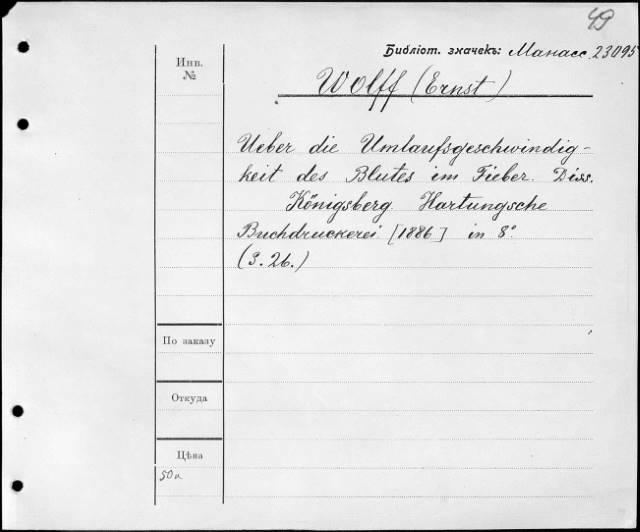 49
Библіот. значекъ: Манасс. 23095
Инв.
№
Wolff (Ernst)
Ueber die Umlaufsgeschwindig-
keit des Blutes im Fieber. Diss.
Königsberg Hartungsche
Buchdruckerei [1886] in 8°
(S. 26.)
По заказу
Откуда
Цѣна
50к